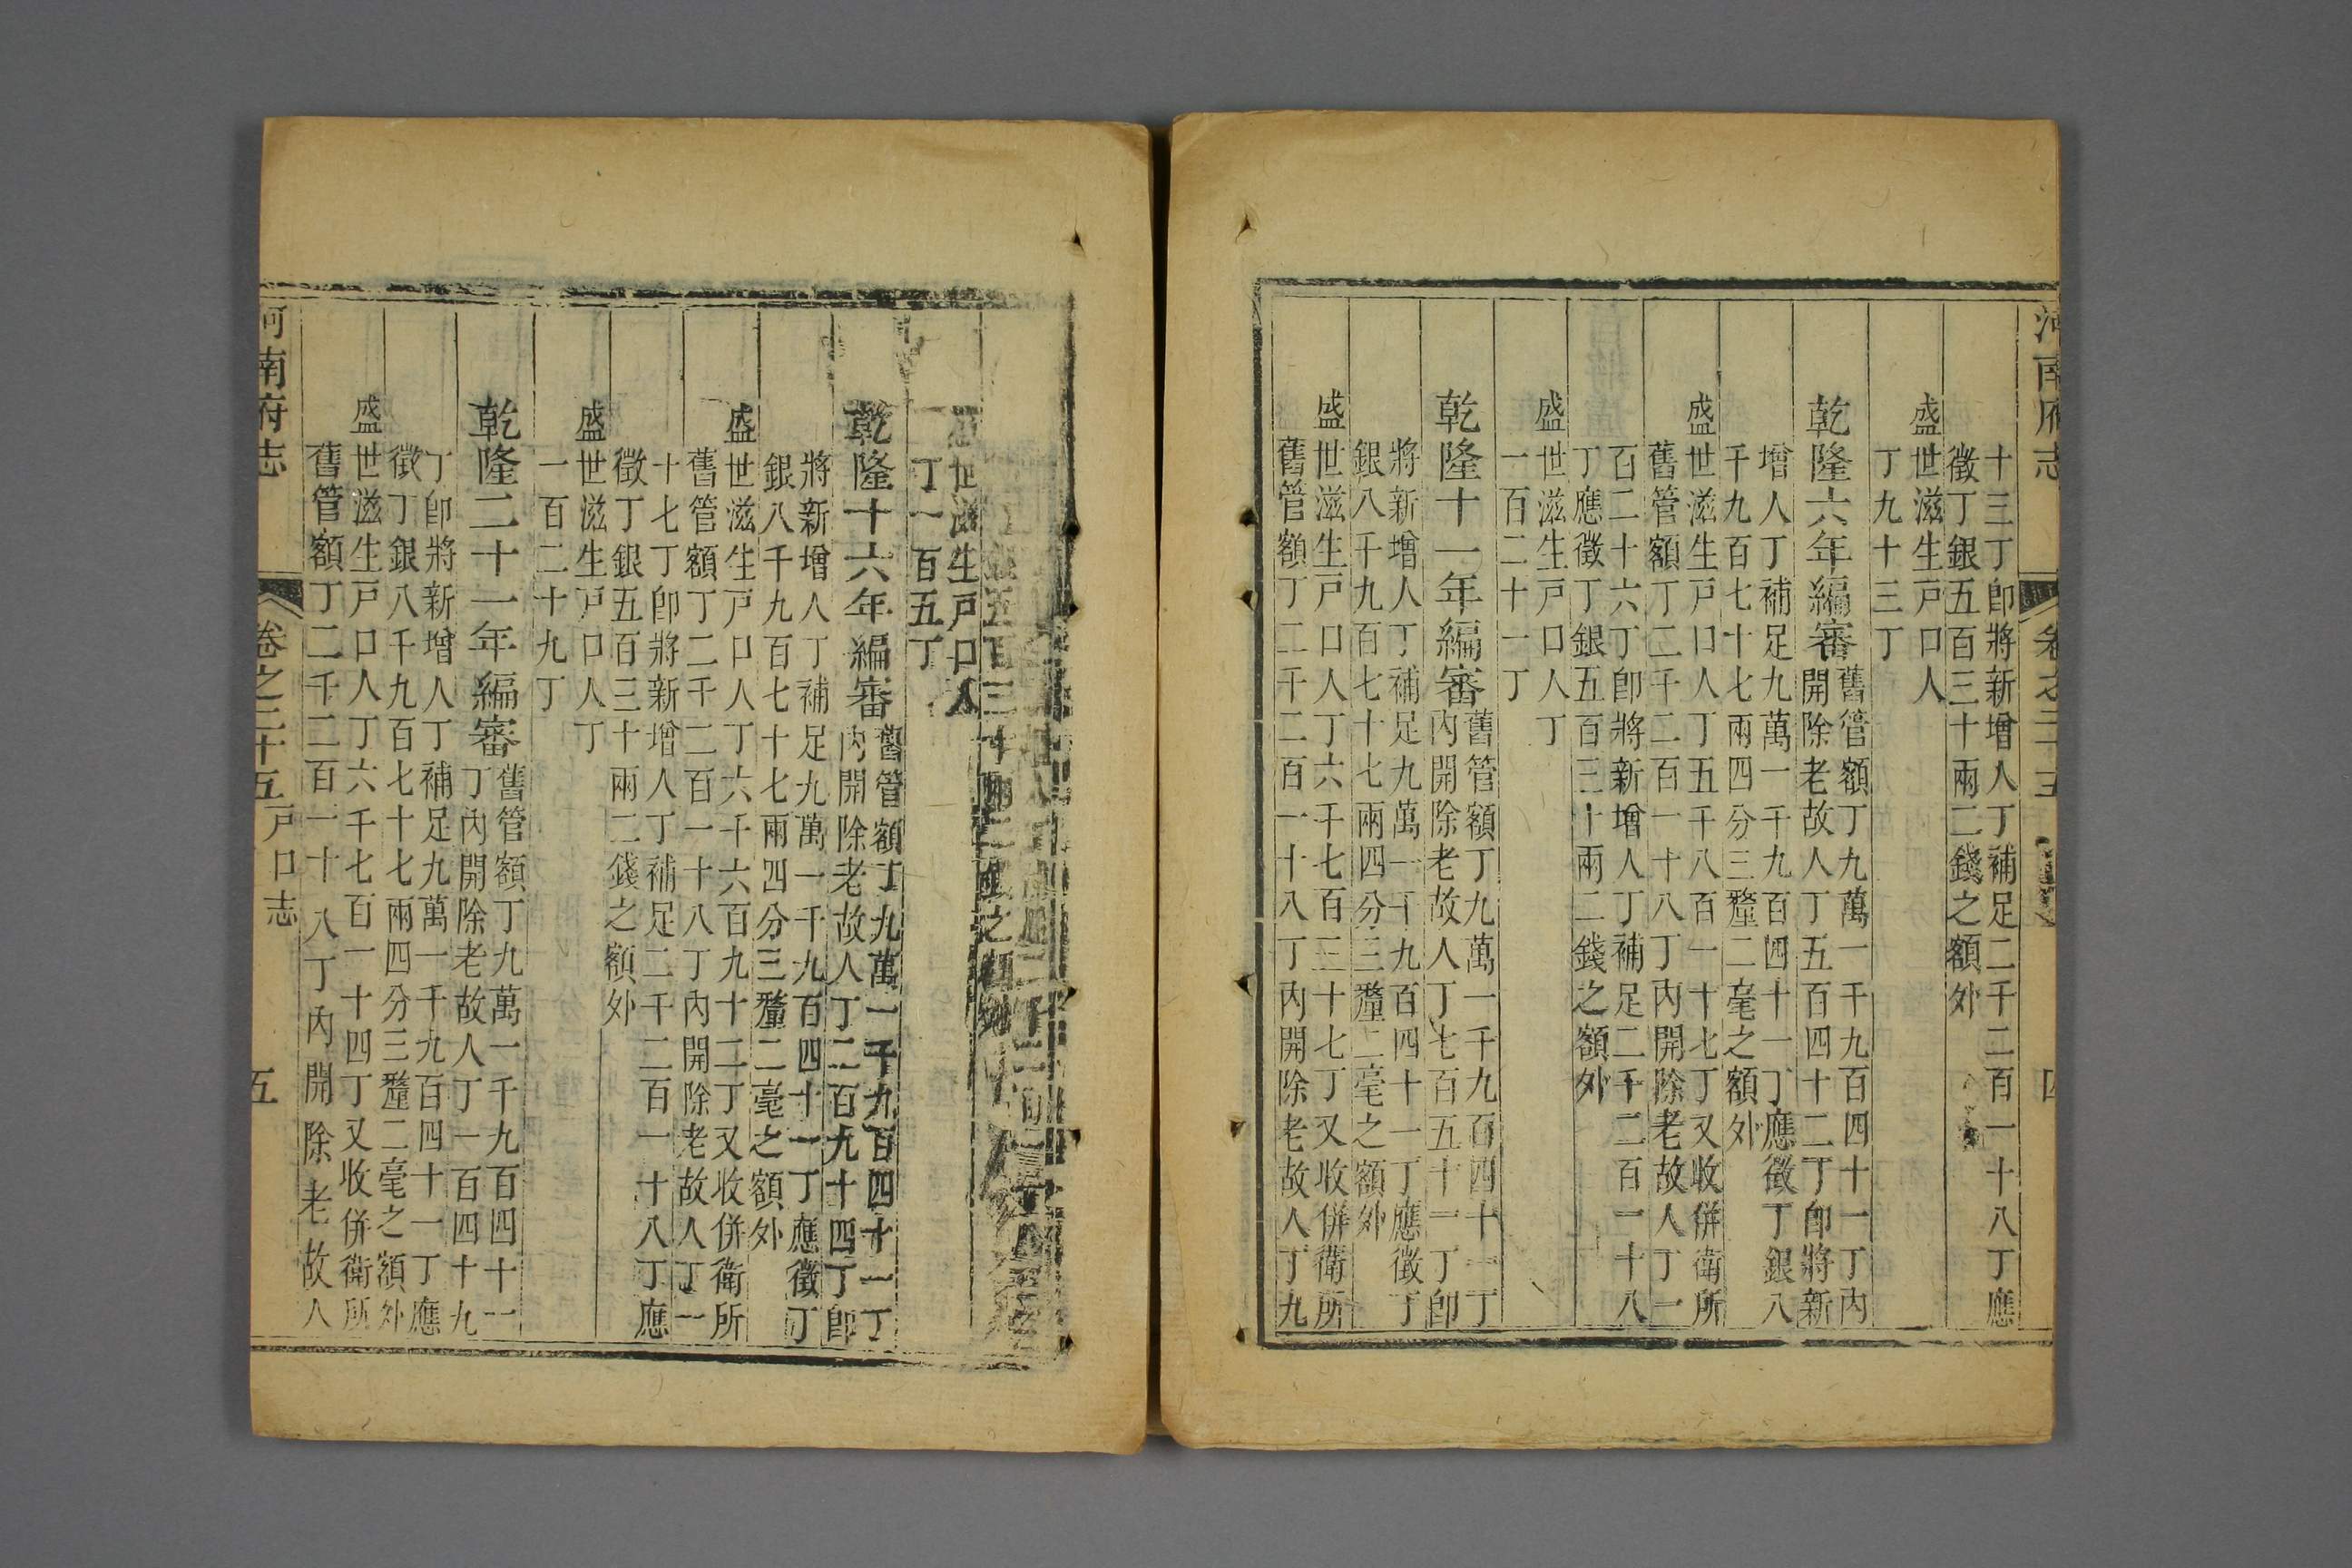 河南府志
卷之二十五
四
十三丁卽將新增人丁補足二千二百一十八丁應
徵丁銀五百三十兩二錢之額外
盛世滋生戶口人
丁九十三丁
乾隆六年編審
舊管額丁九萬一千九百四十一丁內
開除老故人丁五百四十二丁卽將新
增人丁補足九萬一千九百四十一丁應徵丁銀八
千九百七十七兩四分三釐二毫之額外
盛世滋生戶口人丁五千八百一十七丁又收併衛所
舊管額丁二千二百一十八丁內開除老故人丁一
百二十六丁卽將新增人丁補足二千二百一十八
丁應徵丁銀五百三十兩二錢之額外
盛世滋生戶口人丁
一百二十一丁
乾隆十一年編審
舊管額丁九萬一千九百四十一丁
內開除老故人丁七百五十一丁卽
將新增人丁補足九萬一千九百四十一丁應徵丁
銀八千九百七十七兩四分三釐二毫之額外
盛世滋生戶口人丁六千七百三十七丁又收併衛所
舊管額丁二千二百一十八丁內開除老故人丁九
五百三十兩二錢之額外
世滋生戶口人
丁一百五丁
乾隆十六年編審
舊管額丁九萬一千九百四十一丁
內開除老故人丁二百九十四丁卽
將新增人丁補足九萬一千九百四十一丁應徵丁
銀八千九百七十七兩四分三釐二毫之額外
盛世滋生戶口人丁六千六百九十二丁又收併衛所
舊管額丁二千二百一十八丁內開除老故人丁一
十七丁卽將新增人丁補足二千二百一十八丁應
徵丁銀五百三十兩二錢之額外
盛世滋生戶口人丁
一百二十九丁
乾隆二十一年編審
舊管額丁九萬一千九百四十一
丁內開除老故人丁一百四十九
丁卽將新增人丁補足九萬一千九百四十一丁應
徵丁銀八千九百七十七兩四分三釐二毫之額外
盛世滋生戶口人丁六千七百一十四丁又收併衛所
舊管額丁二千二百一十八丁內開除老故人
河南府志
卷之二十五
戶口志
五